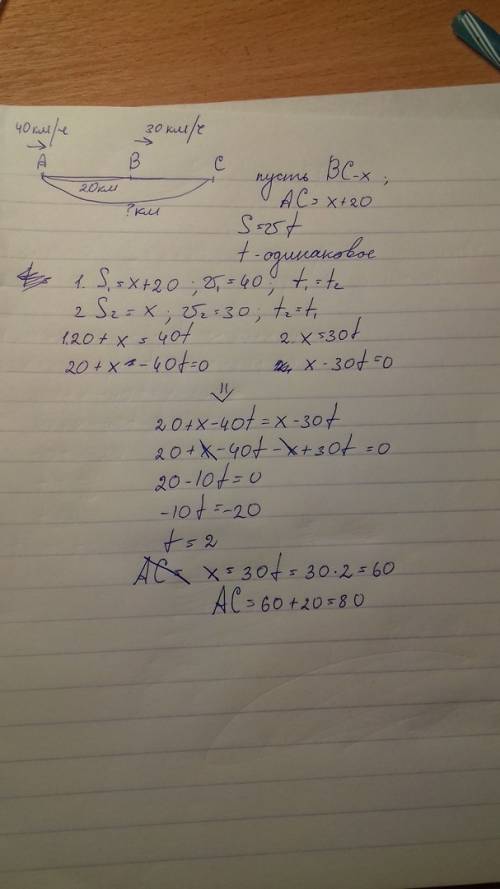 40км/ч 30км/ч
A B C
20км
?км
пусть BC-x;
AC=x+20
S=vt
t-одинаковое
1. S₁=x+20; v₁=40; t₁=t₂
2 S₂=x; v₂=30; t₂=t₁
1.20+x=40t 2. x=30t
20+x-40t=0 x-30t=0
⇓
20+x-40t=x-30t
20+x-40t-x+30t=0
20-10t=0
-10t=-20
t=2
AC= x=30t=30·2=60
AC=60+20=80